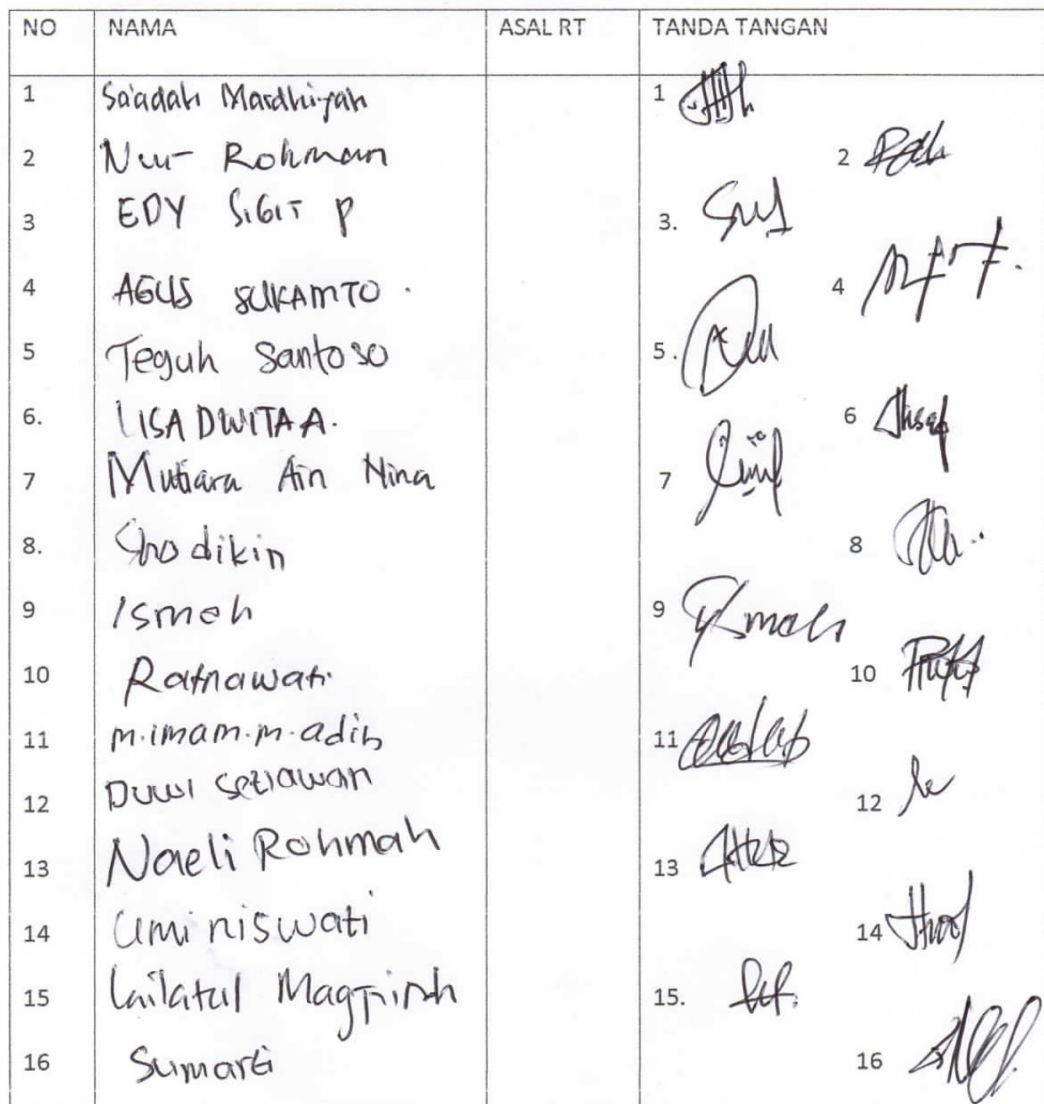 NO NAMA ASAL RT TANDA TANGAN
1 Sa'adah Mardhiyah 1
2 Nur Rohman 2
3 EDY SIGIT P 3.
4 AGUS SUKAMTO. 4
5 Teguh Santoso 5.
6. LISA DWITA A. 6
7 Mutiara Ain Nina 7
8. Shodikin 8
9 Ismah 9 Ismah
10 Ratnawati 10
11 m.imam.m.adib 11
12 Duwi Setiawan 12
13 Naeli Rohmah 13
14 Umi niswati 14
15 Lailatul Magfiroh 15.
16 Sumarti 16